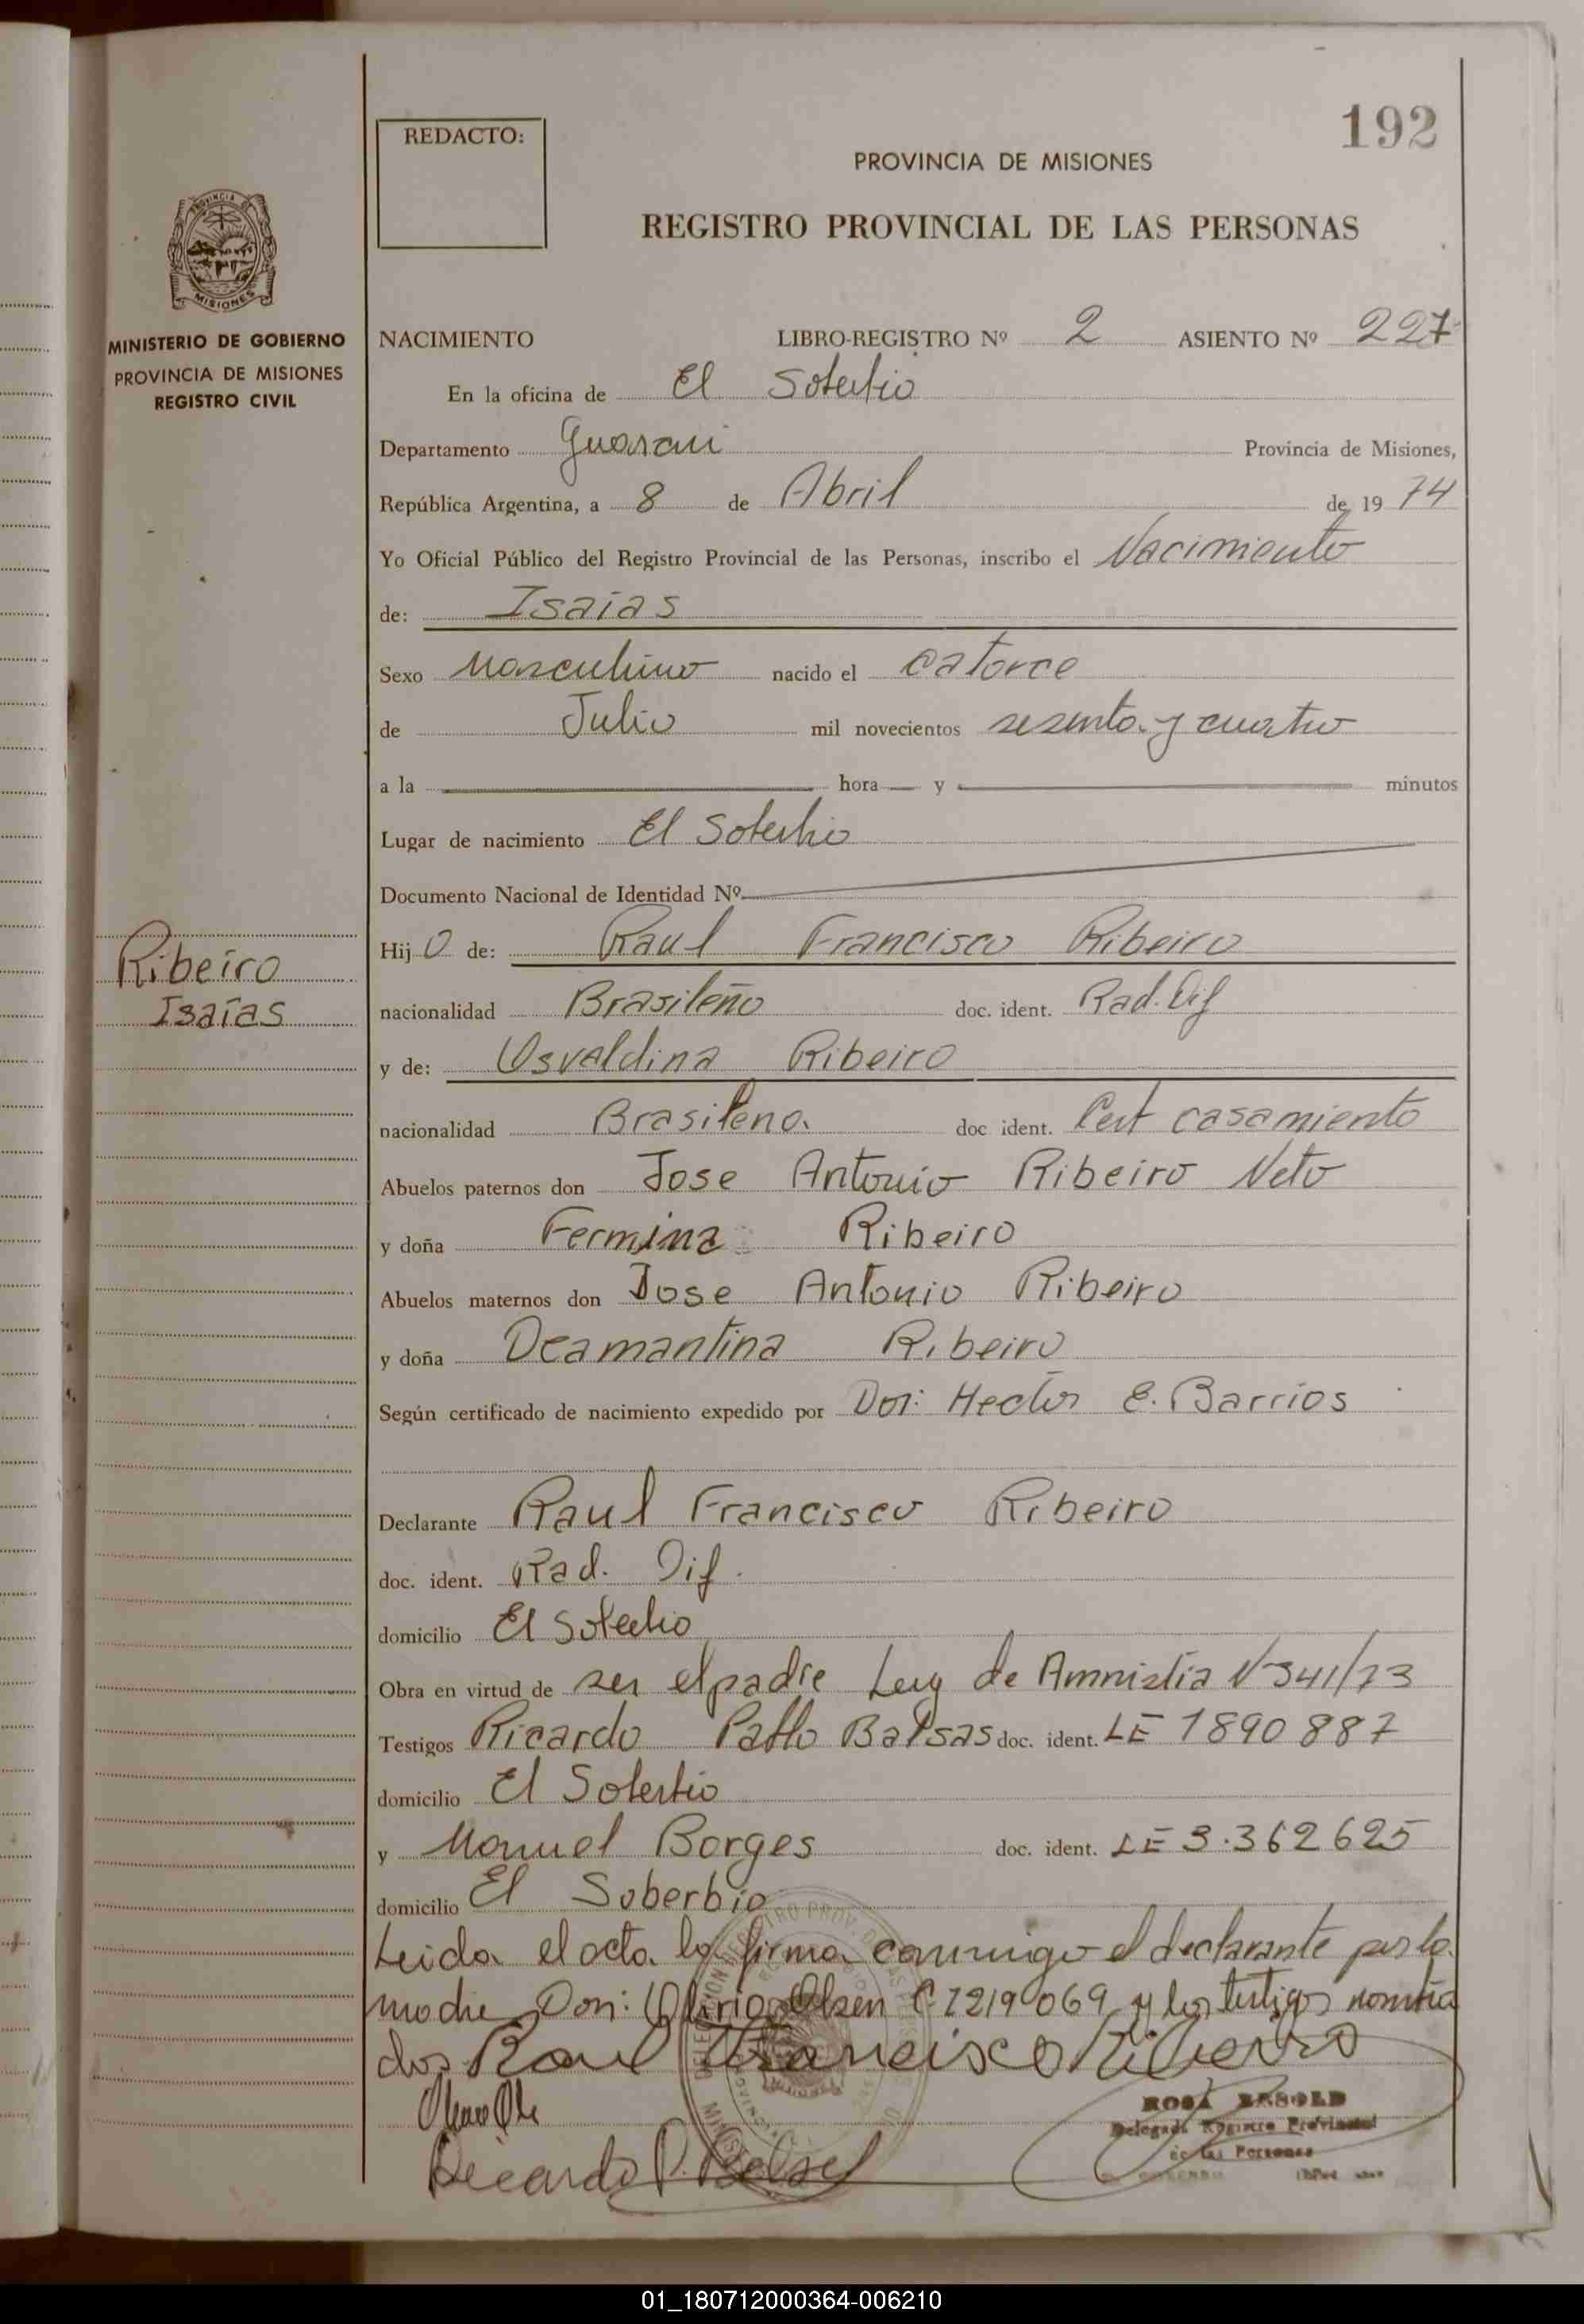 192
REDACTO:
PROVINCIA DE MISIONES
REGISTRO PROVINCIAL DE LAS PERSONAS
PROVINCIA DE
MISIONES
MINISTERIO DE GOBIERNO
PROVINCIA DE MISIONES
REGISTRO CIVIL
NACIMIENTO LIBRO-REGISTRO Nº 2 ASIENTO Nº 227
En la oficina de El Soberbio
Departamento Guarani Provincia de Misiones,
República Argentina, a 8 de Abril de 19 74
Yo Oficial Público del Registro Provincial de las Personas, inscribo el Nacimiento
de: Isaías
Sexo Masculino nacido el catorce
de Julio mil novecientos sesenta y cuatro
a la hora y minutos
Lugar de nacimiento El Soberbio
Documento Nacional de Identidad Nº
Ribeiro
Isaías
Hij O de: Raul Francisco Ribeiro
nacionalidad Brasileño doc. ident. Rad. Dif
y de: Osvaldina Ribeiro
nacionalidad Brasilena doc ident. Cert casamiento
Abuelos paternos don Jose Antonio Ribeiro Neto
y doña Fermina Ribeiro
Abuelos maternos don Jose Antonio Ribeiro
y doña Deamantina Ribeiro
Según certificado de nacimiento expedido por Don: Hector E. Barrios
Declarante Raul Francisco Ribeiro
doc. ident. Rad. Dif.
domicilio El Soberbio
Obra en virtud de ser el padre Ley de Amnistia Nº 341/73
Testigos Ricardo Pablo Balsas doc. ident. LE 1890887
domicilio El Soberbio
y Manuel Borges doc. ident. LE 3.362625
domicilio El Soberbio
Leida el acta la firma conmigo el declarante por la
madre Don: Olsen C.I 219069 y los testigos nombra
dos Raul Francisco Ribeiro
Ricardo P. Balsas
ROSA
Delegada Registro Provincial
de las Personas
01_180712000364-006210